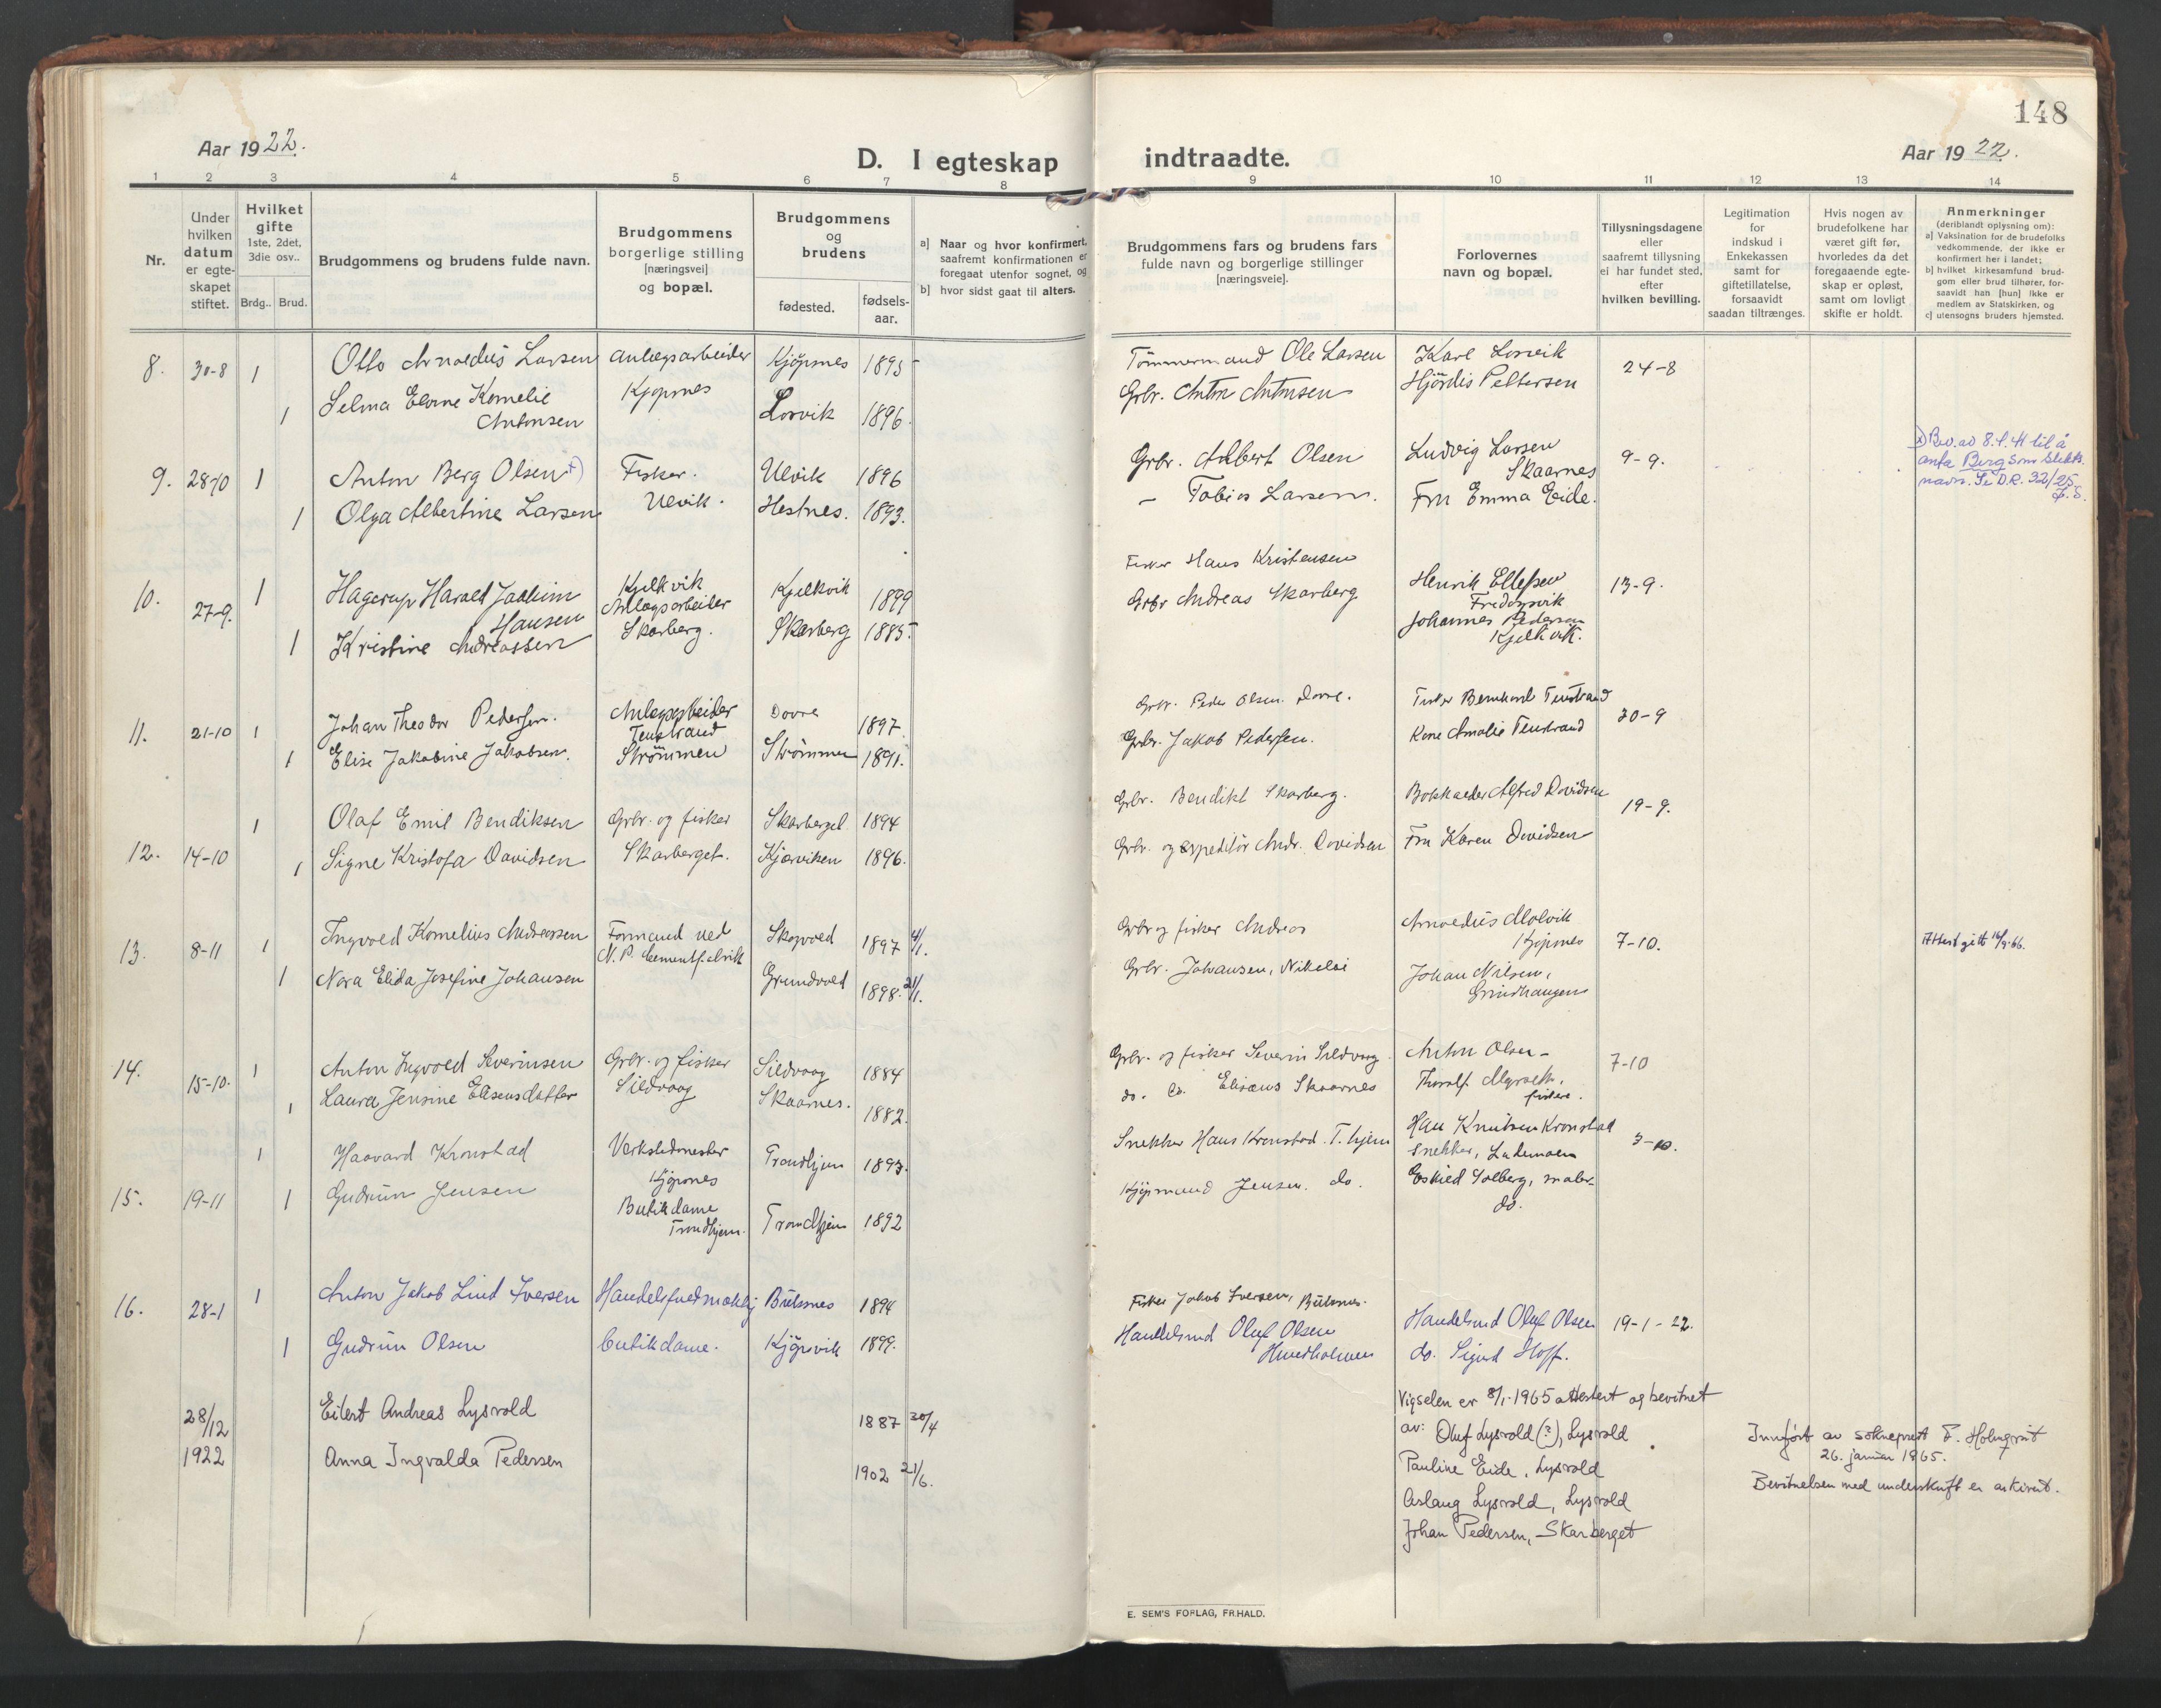 148
Aar 1922.
D. I egteskap
indtraadte.
Aar 1922.
1 2 3 4 5 6 7 8 9 10 11 12 13 14
Nr.
Under
hvilken
datum
er egte-
skapet
stiftet.
Hvilket
gifte
1ste, 2det,
3die osv..
Brdg.. Brud.
Brudgommens og brudens fulde navn.
Brudgommens
borgerlige stilling
[næringsvei]
og bopæl.
Brudgommens
og
brudens
fødested.
fødsels-
aar.
a] Naar og hvor konfirmert,
saafremt konfirmationen er
foregaat utenfor sognet, og
b] hvor sidst gaat til alters.
Brudgommens fars og brudens fars
fulde navn og borgerlige stillinger
[næringsveie].
Forlovernes
navn og bopæl.
Tillysningsdagene
eller
saafremt tillysning
ei har fundet sted,
efter
hvilken bevilling.
Legitimation
for
indskud i
Enkekassen
samt for
giftetillatelse,
forsaavidt
saadan tiltrænges.
Hvis nogen av
brudefolkene har
været gift før,
hvorledes da det
foregaaende egte-
skap er opløst,
samt om lovligt
skifte er holdt.
Anmerkninger
(deriblandt oplysning om):
a] Vaksination for de brudefolks
vedkommende, der ikke er
konfirmert her i landet;
b] hvilket kirkesamfund brud-
gom eller brud tilhører, for-
saavidt han [hun] ikke er
medlem av Statskirken, og
c] utensogns bruders hjemsted.
8. 30-8 1 Otto Arnoldus Larsen Anlægsarbeider Kjøpsnes 1895 Tömmermand Ole Larsen Karl Losvik 24-8
Kjøpsnes Hjördis Pettersen
1 Selma Kornelie Antonsen Losvik 1896. Grbr. Anton Antonsen
9. 28-10 1 Anton Berg Olsen x) Fisker. Ulvik 1896 Grbr. Albert Olsen Ludvig Larsen 9-9.
Skaarnes
1 Olga Albertine Larsen Ulvik. Hestnes. 1893. — Tobias Larsen. Fru Emma Eide.
x) Bev. av 8.1.41 til å
anta Berg som slekts-
navn. Se D.R. 32/25
10. 27-9. 1 Hagerup Harald Joakim Hansen Kjelkvik Kjelkvik 1899 Fisker Hans Kristensen Henrik Ellefsen 13-9.
Anlægsarbeider
1 Kristine Andreassen Skarberg. Skarberg 1885. Grbr Andreas Skarberg Johannes Pedersen
Kjelkvik.
11. 21-10 1 Johan Theodor Pedersen. Anlægsarbeider Dovre 1897. Grbr. Peder Olsen Dovre. Fisker Bernhard Tenstrand 30-9
Tenstrand
1 Elise Jakobine Jakobsen. Strømmen Strømmen 1891. Grbr. Jakob Pedersen. Kone Amalie Tenstrand
12. 14-10 1 Olaf Emil Bendiksen Grbr. og fisker Skarberget 1894 Grbr. Bendikt Skarberg. Bokholder Alfred Davidsen 19-9.
1 Signe Kristofa Davidsen Skarberget. Kjærviken 1896. Grbr. og expeditör Andr. Davidsen Fru Karen Davidsen
13. 8-11 1 Ingvald Kornelius Andreassen Formand ved Skogvold 1897 4/1. Grbr og fisker Andreas Arnoldus Molvik 7-10.
N. P. Cementfabrik Kjøpsnes
1 Nora Elida Josefine Johansen Grundvold 1898. 21/1. Grbr. Johansen, Nikolai Johan Nilsen,
Grindhaugen
14. 15-10. 1 Anton Ingvold Severinsen Grbr. og fisker Sildvaag 1884 Grbr. og fisker Severin Sildvaag Anton Olsen 7-10
1 Laura Jensine Elisensdatter Sildvaag Skaarnes. 1882. do. do. Eliseus Skaarnes Thoralf
15. 19-11 1 Haavard Kronstad Verkstedmester Trondhjem 1893. Snekker Hans Kronstad. T.hjem Hans Knutsen Kronstad 3-10.
Kjøpsnes snekker, Lademoen
1 Gudrun Jensen Butikdame Trondhjem 1892 Kjøpmand Jensen. do. Eskild Solberg, maler
Trondhjem. do.
16. 28-1 1 Anton Jakob Lind Iversen Bulsnes 1894 Fisker Jakob Iversen, Bulsnes. Handelsmd Oluf Olsen 19-1-22.
1 Gudrun Olsen butikdame. Kjöpsvik 1899. Handelsmd Oluf Olsen do. Sigurd Hoff.
28/12 Eilert Andreas Lysvold 1887 30/4 Vigselen er 8/1-1965 attestert og bevitnet
1922 av: Oluf Lysvold (?), Lysvold
Anna Ingvalda Pedersen 1902 21/6. Pauline Eide, Lysvold
Aslaug Lysvold, Lysvold
Johan Pedersen, Skarberget
Innført av sokneprest F. Holmqvist
26. januar 1965.
Bevitnelsen med underskrift er arkivert.
E. SEM'S FORLAG, FR.HALD.